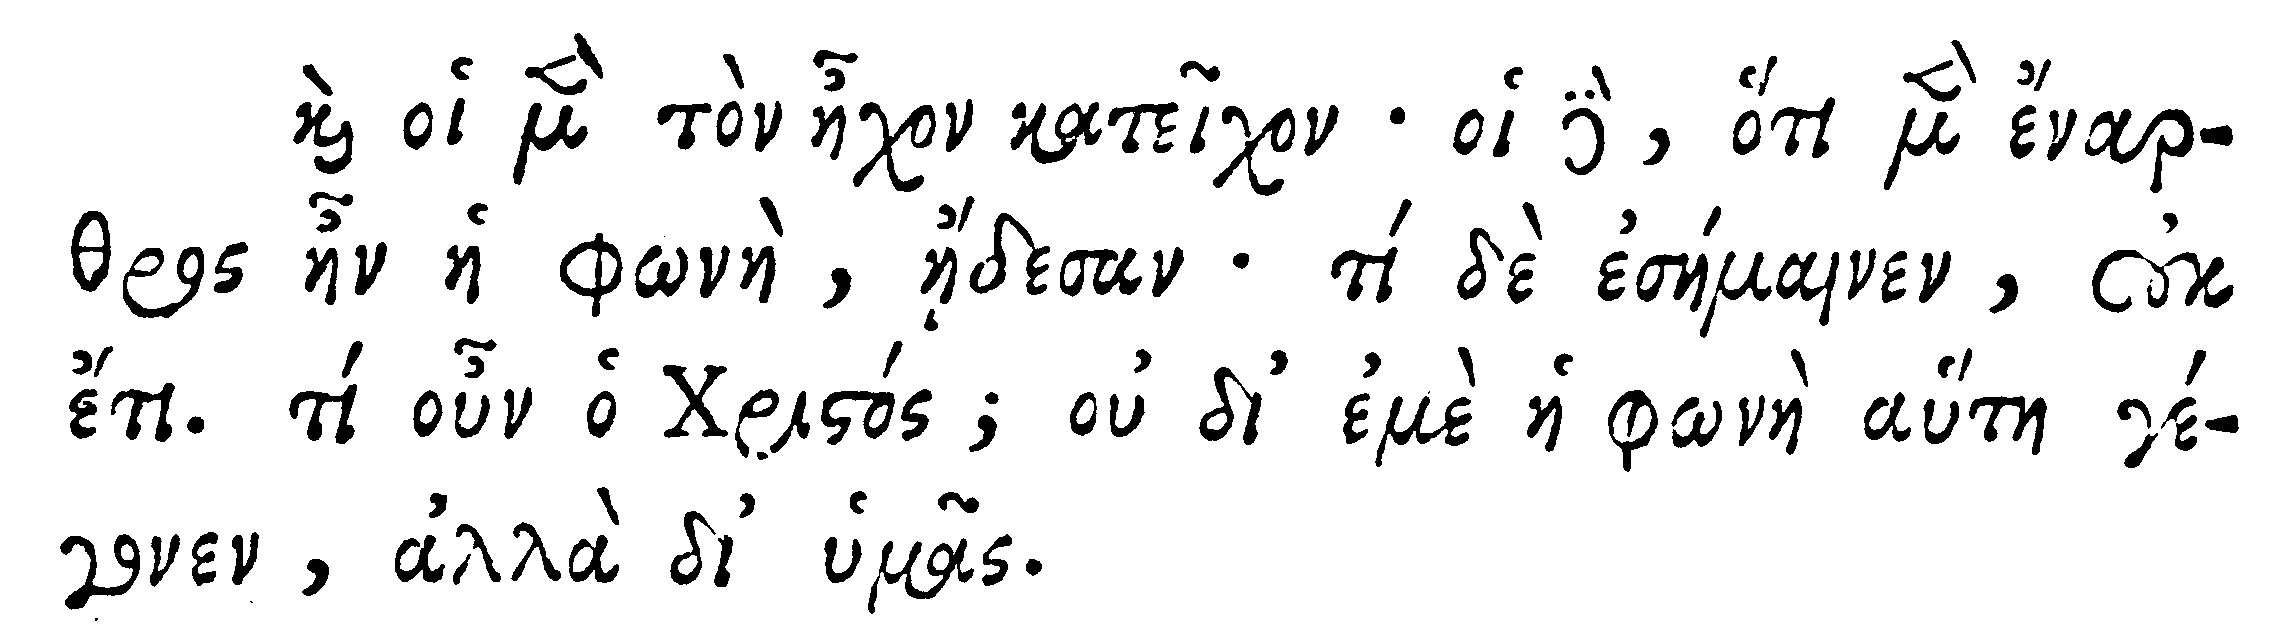 καὶ οἱ μὲν τὸν ἦχον κατεῖχον · οἱ δὲ, ὅτι μὲν ἔναρ-
θρος ἦν ἡ φωνὴ, ᾔδεσαν · τί δὲ ἐσήμαινεν, οὐκ
ἔτι. τί οὖν ὁ Χριστός; οὐ δι᾽ ἐμὲ ἡ φωνὴ αὕτη γέ-
γονεν, ἀλλὰ δι᾽ ὑμᾶς.